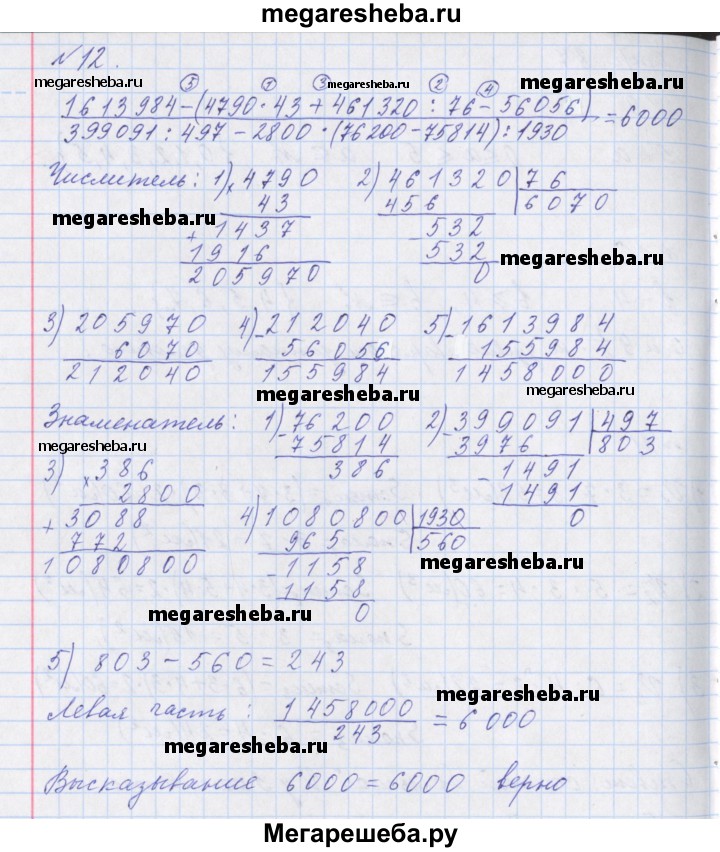 megaresheba.ru
№12.
megaresheba.ru ⑤ ① ③ megaresheba.ru ② ④
1613984-(4790·43+461320:76-56056)
=6000
399091:497-2800·(76200-75814):1930
Числитель: 1) × 4790 2) 461320 | 76
43 456 6070
megaresheba.ru + 1437 - 532
1916 532 megaresheba.ru
205970 0
3) 205970 4) - 212040 5) - 1613984
6070 56056 155984
212040 155984 1458000
megaresheba.ru megaresheba.ru
Знаменатель: 1) - 76200 2) - 399091 | 497
megaresheba.ru 75814 3976 803
3) × 386 386 - 1491
2800 1491
+ 3088 4) 1080800 | 1930 0
772 965 560
1080800 - 1158 megaresheba.ru
1158
megaresheba.ru 0
5) 803-560=243
Левая часть: 1458000 megaresheba.ru
= 6000
243
megaresheba.ru
Высказывание 6000=6000 верно
Мегарешеба.ру